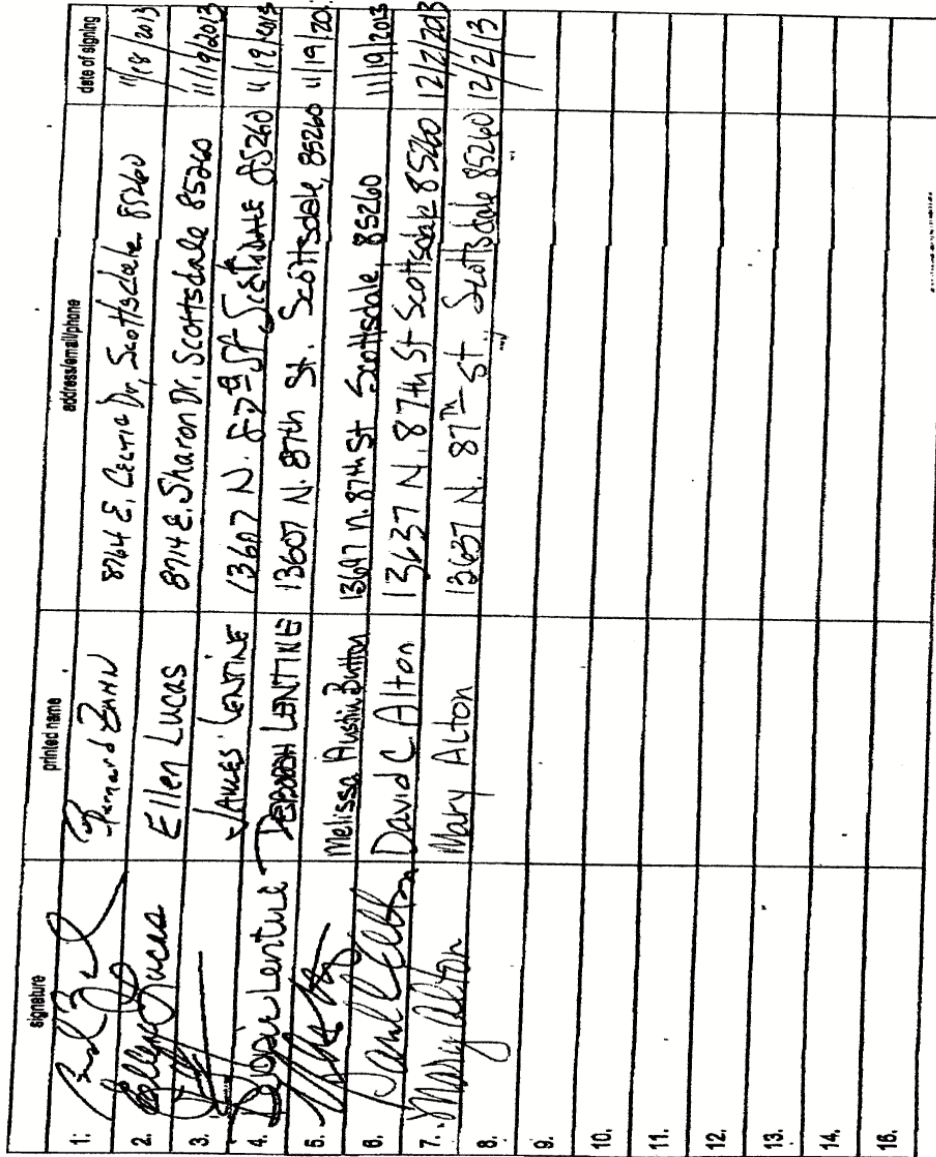 signature printed name address/email/phone date of signing
1. Bernard ZAHN 8764 E. CELTIC Dr, Scottsdale 85260 11/18/2013
2. Ellen Lucas Ellen Lucas 8714 E. Sharon Dr. Scottsdale 85260 11/19/2013
3. JAMES LENTINE 13607 N. 87th St SCOTTSDALE 85260 11/19/2013
4. Debbie Lentine DEBORAH LENTINE 13607 N. 87th St. Scottsdale, 85260 11/19/201
5. Melissa Austin Button 13647 N. 87th St Scottsdale, 85260 11/19/2013
6. David C Alton David C Alton 13637 N. 87th St Scottsdale 85260 12/2/2013
7. Mary Alton Mary Alton 13637 N. 87TH St. Scottsdale 85260 12/2/13
8.
9.
10.
11.
12.
13.
14.
15.